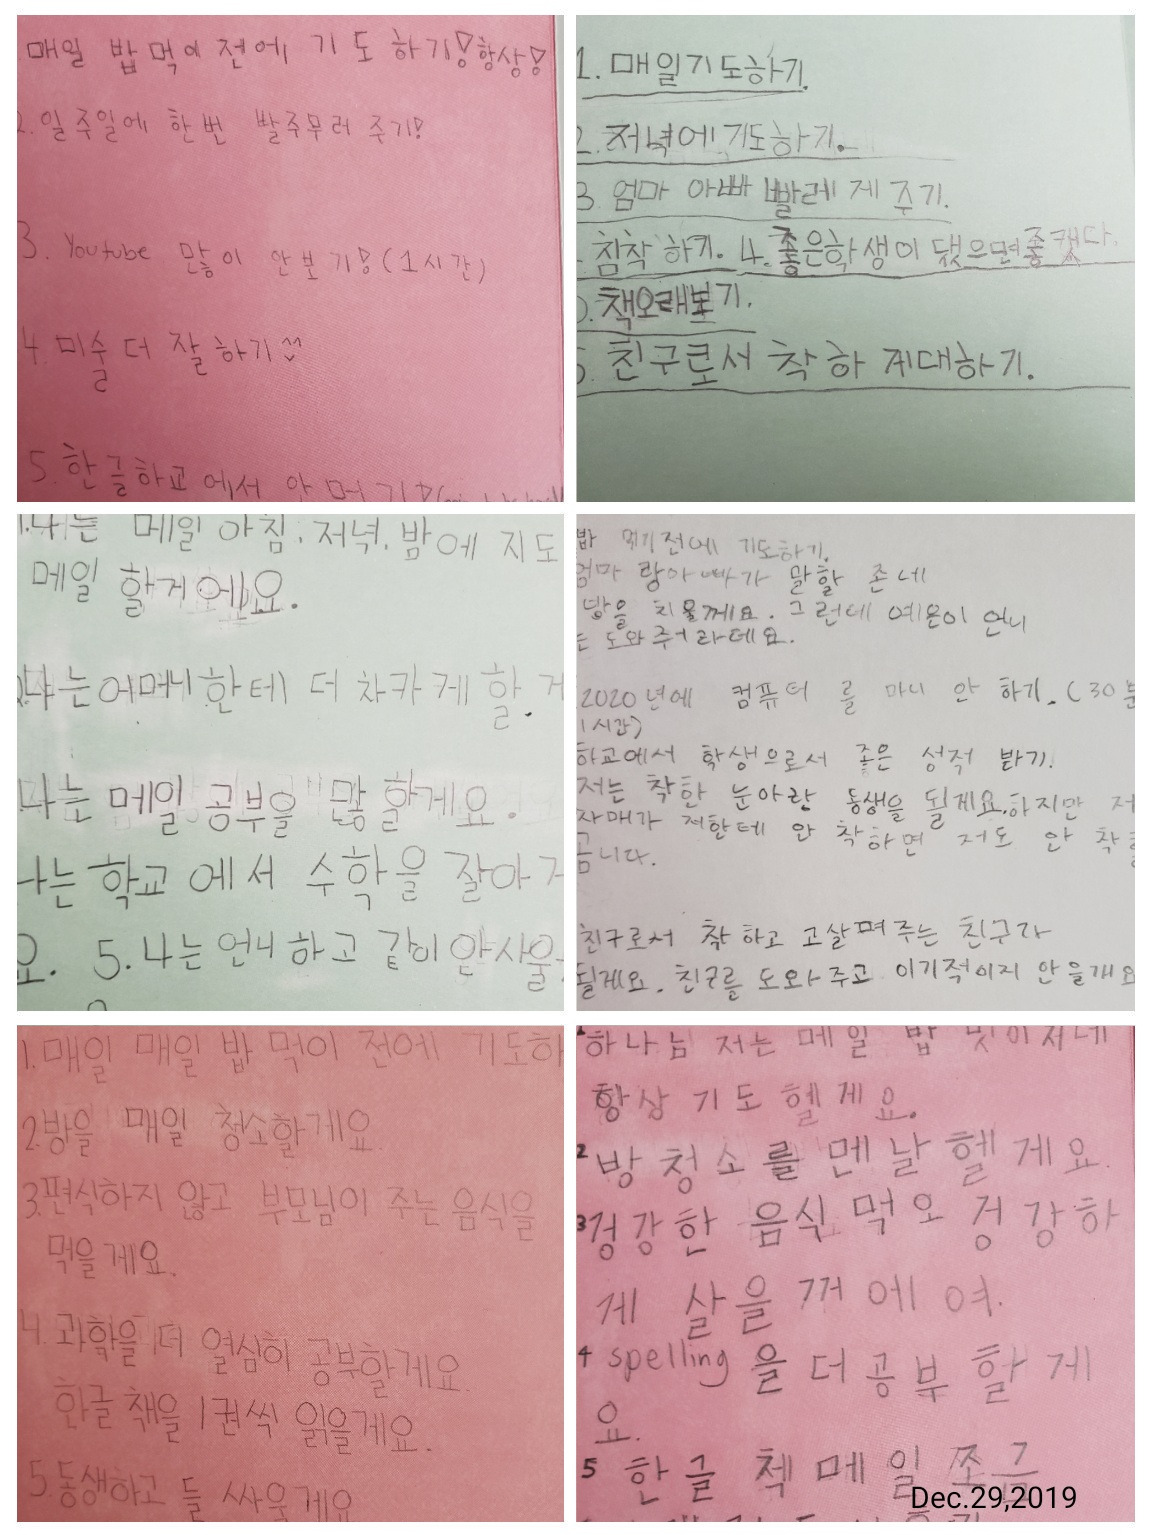 매일 밥 먹이 전에 기도 하기! 항상!
2. 일주일에 한번 발주무러 주기!
3. Youtube 많이 안보기! (1시간)
4. 미술 더 잘 하기
5. 한글하교에서 안
1. 매일기도하기.
2. 저녁에 기도하기.
3. 엄마 아빠 빨레 게 주기.
침착 하기. 4. 좋은학생이 됐으면좋캤다.
책오래보기.
친구로서 착하 게대하기.
1. 나는 메일 아침, 저녁, 밤에 지도
메일 할게에요.
나는어머니한테 더 차카게 할 게
나는 메일 공부을 많 할게요.
나는 학교에서 수학을 잘아
요. 5. 나는 언니하고 같이 안싸울
밥 먹기전에 기도하기.
엄마 랑아빠가 말할 존네
방을 치울께요. 그런데 예은이 언니
는 도와주어라데요.
2020년에 컴퓨터 를 마니 안 하기. (30분
1시간)
하교에서 학생으로서 좋은 성적 밝기.
저는 착한 눈아란 동생을 될게요. 하지만 저
자매가 저한테 안 착하면 저도 안 착
곱니다.
친구로서 착 하고 고살펴주는 친구가
될게요. 친구를 도와주고 이기적이지 안을개요
1. 매일 매일 밥 먹이 전에 기도하
2. 방을 매일 청소할게요.
3. 편식하지 않고 부모님이 주는 음식을
먹을게요.
4. 과학을 더 열심히 공부할게요.
한글 책을 1권씩 읽을게요.
5. 동생하고 들 싸울게요
하나님 저는 메일 밥
항상 기도 헬게요.
2 방 청소를 멘날 헬게요.
3 겅강한 음식 먹오 겅강하
게 살을꺼에여.
4 spelling을 더 공부 할게
요.
5 한글 첵 메일 쪼금
Dec.29,2019